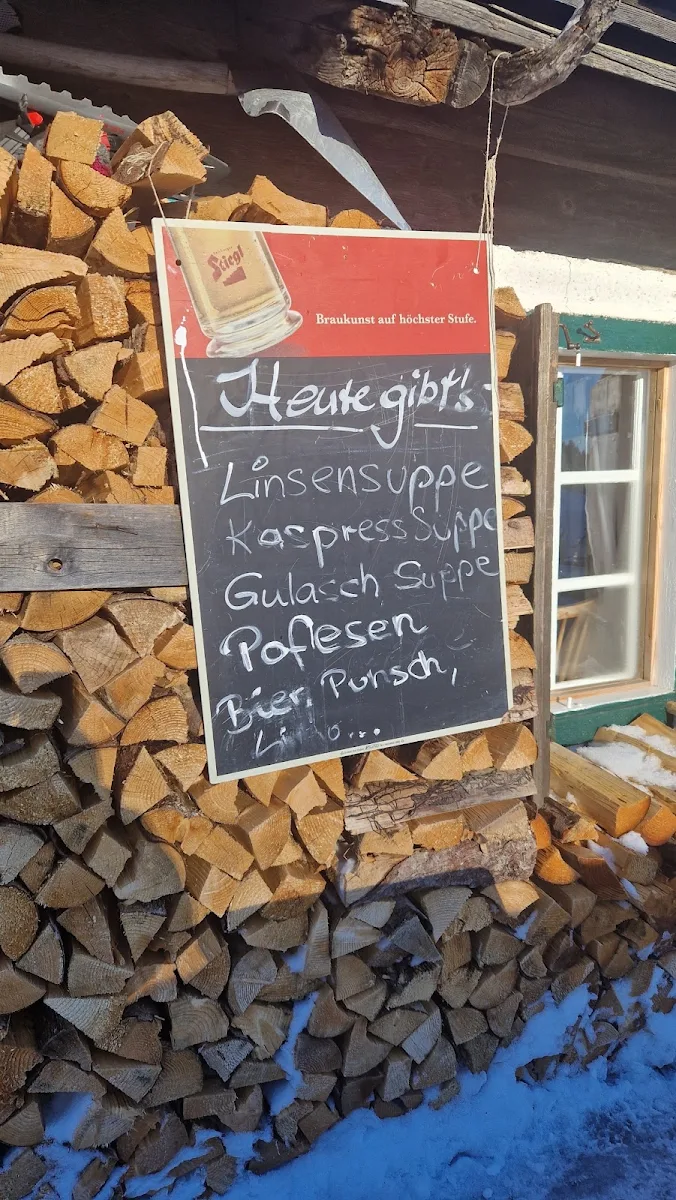 Stiegl
Braukunst auf höchster Stufe.
Heute gibt's:
Linsensuppe
KaspressSuppe
Gulasch Suppe
Pofesen
Bier, Punsch,